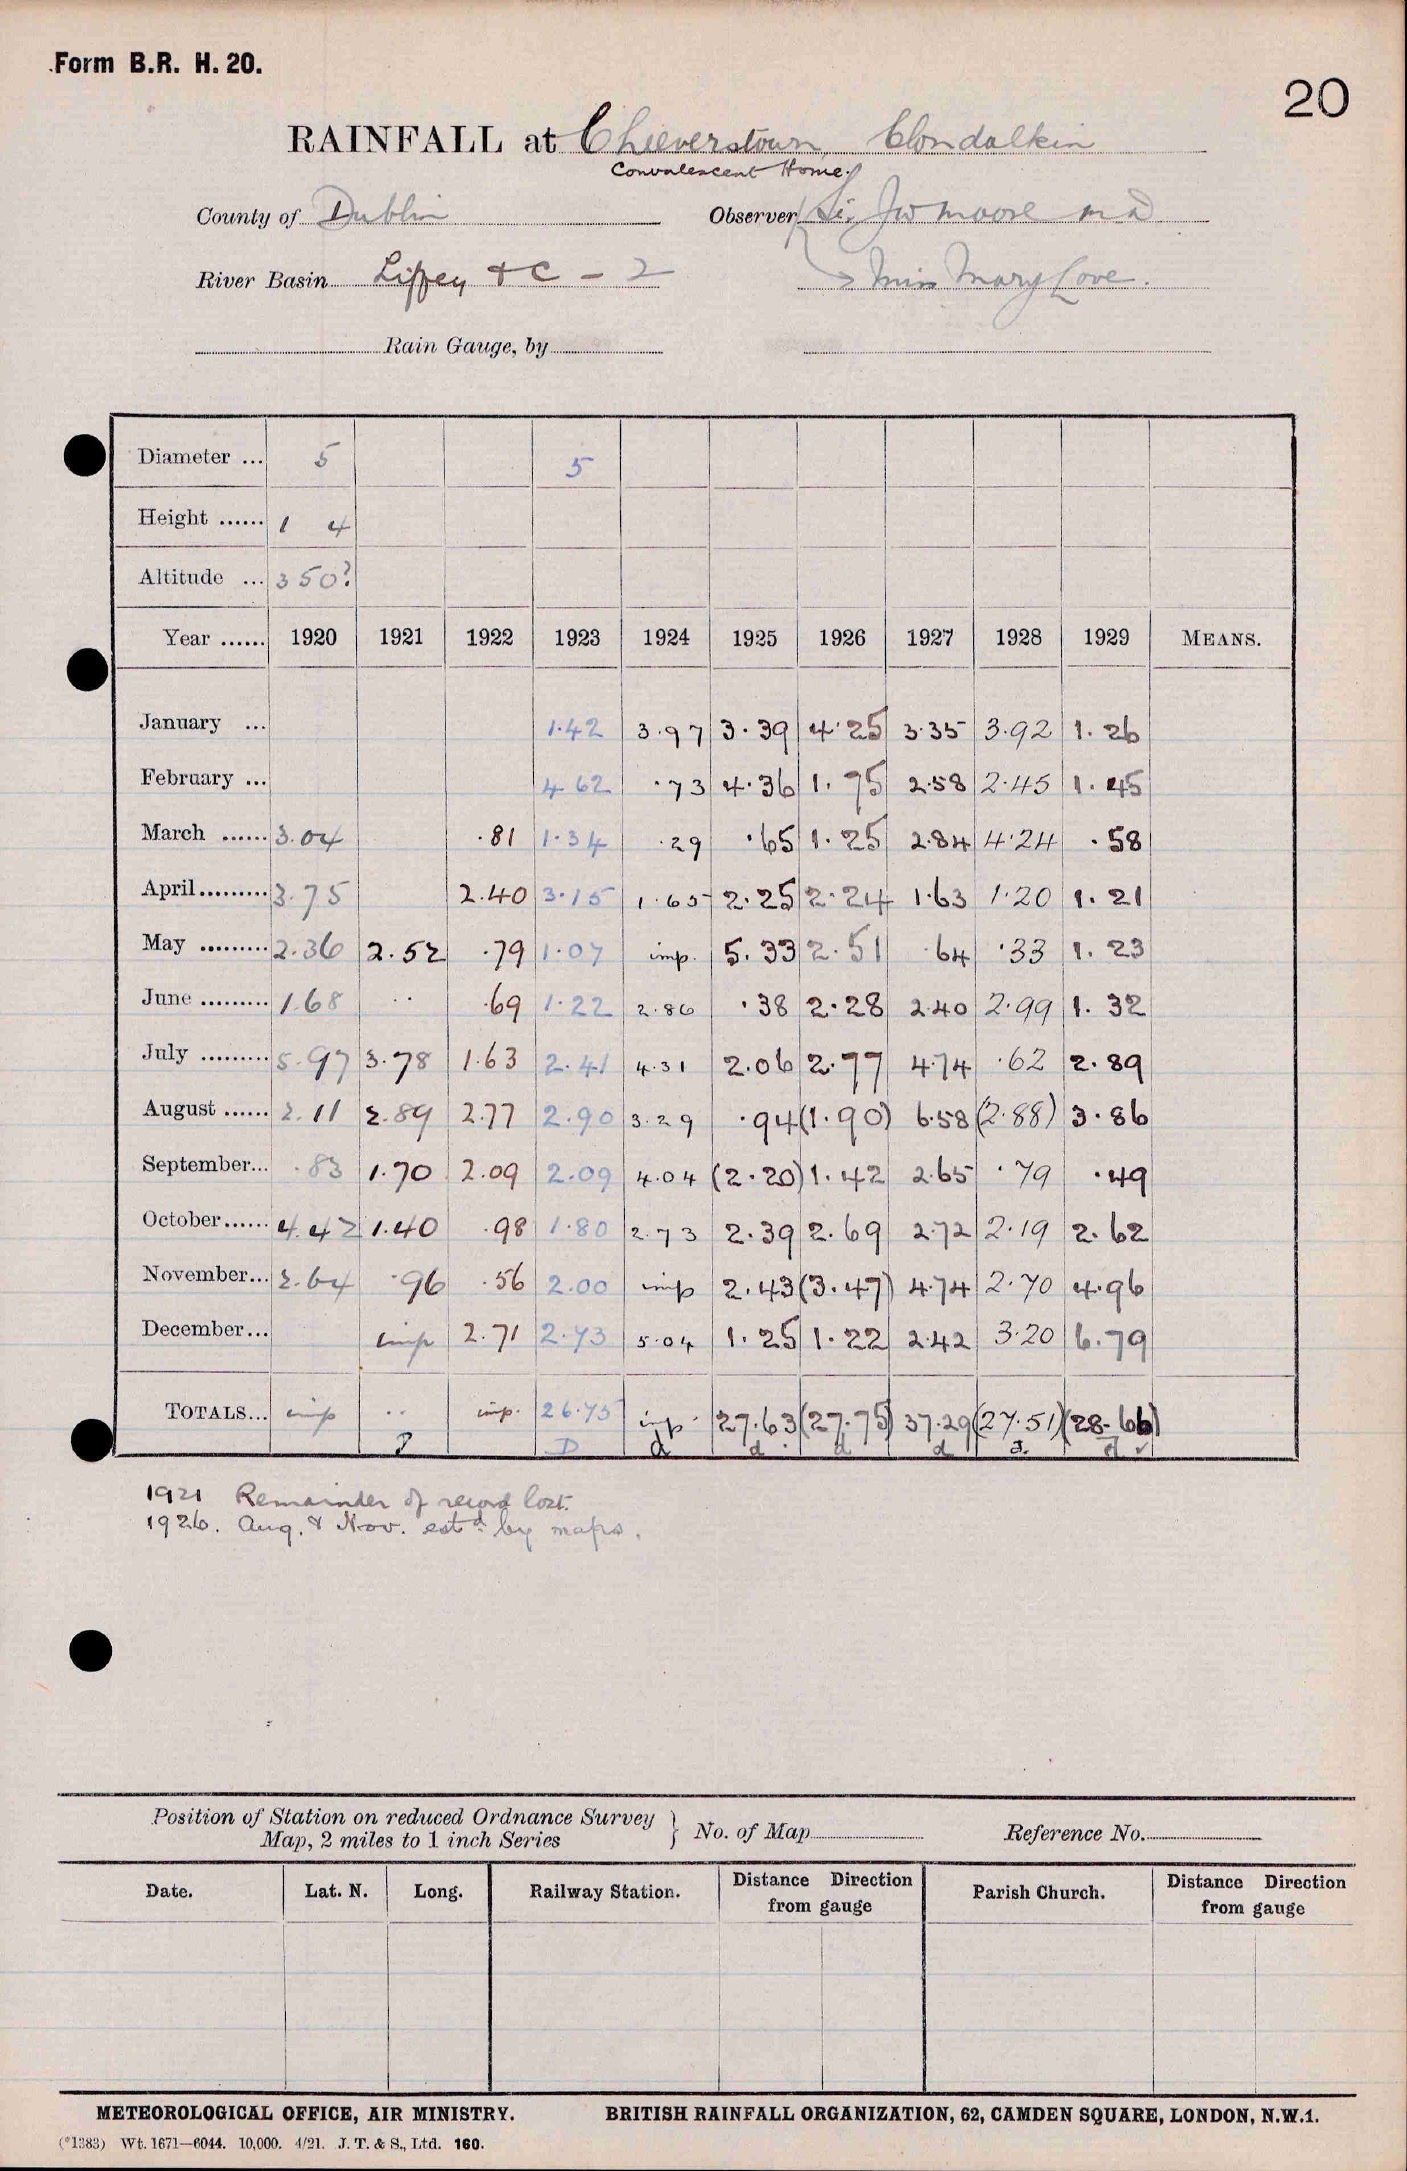 Form B.R. H. 20.
20
RAINFALL at Cheeverstown, Clondalkin
Convalescent Home.
County of Dublin Observer Sir JW Moore MD
River Basin Liffey &c - 2 Miss Mary Love.
Rain Gauge, by
Diameter ... 5 5
Height ...... 1 4
Altitude ... 350?
Year ...... 1920 1921 1922 1923 1924 1925 1926 1927 1928 1929 MEANS.
January ... 1.42 3.97 3.39 4.25 3.35 3.92 1.26
February ... 4 62 .73 4.36 1.75 2.58 2.45 1.45
March ...... 3.04 .81 1.34 .29 .65 1.25 2.84 4.24 .58
April......... 3.75 2.40 3.15 1.65 2.25 2.24 1.63 1.20 1.21
May ......... 2.36 2.52 .79 1.07 imp. 5.33 2.51 .64 .33 1.23
June ......... 1.68 .. .69 1.22 2.86 .38 2.28 2.40 2.99 1.32
July ......... 5.97 3.78 1.63 2.41 4.31 2.06 2.77 4.74 .62 2.89
August ...... 2.11 2.89 2.77 2.90 3.29 .94 (1.90) 6.58 (2.88) 3.86
September... .83 1.70 2.09 2.09 4.04 (2.20) 1.42 2.65 .79 .49
October...... 4.42 1.40 .98 1.80 2.73 2.39 2.69 2.72 2.19 2.62
November... 2.64 .96 .56 2.00 imp 2.43 (3.47) 4.74 2.70 4.96
December... imp 2.71 2.73 5.04 1.25 1.22 2.42 3.20 6.79
TOTALS... imp .. imp. 26.75 imp. 27.63 (27.75) 37.29 (27.51) (28.66)
D d d. d d d. d ✓
1921 Remainder of record lost.
1926. Aug. & Nov. estd by maps.
Position of Station on reduced Ordnance Survey
Map, 2 miles to 1 inch Series } No. of Map Reference No.
Date. Lat. N. Long. Railway Station. Distance Direction from gauge Parish Church. Distance Direction from gauge
METEOROLOGICAL OFFICE, AIR MINISTRY. BRITISH RAINFALL ORGANIZATION, 62, CAMDEN SQUARE, LONDON, N.W.1.
(*1383) Wt. 1671—6044. 10,000. 4/21. J. T. & S., Ltd. 160.